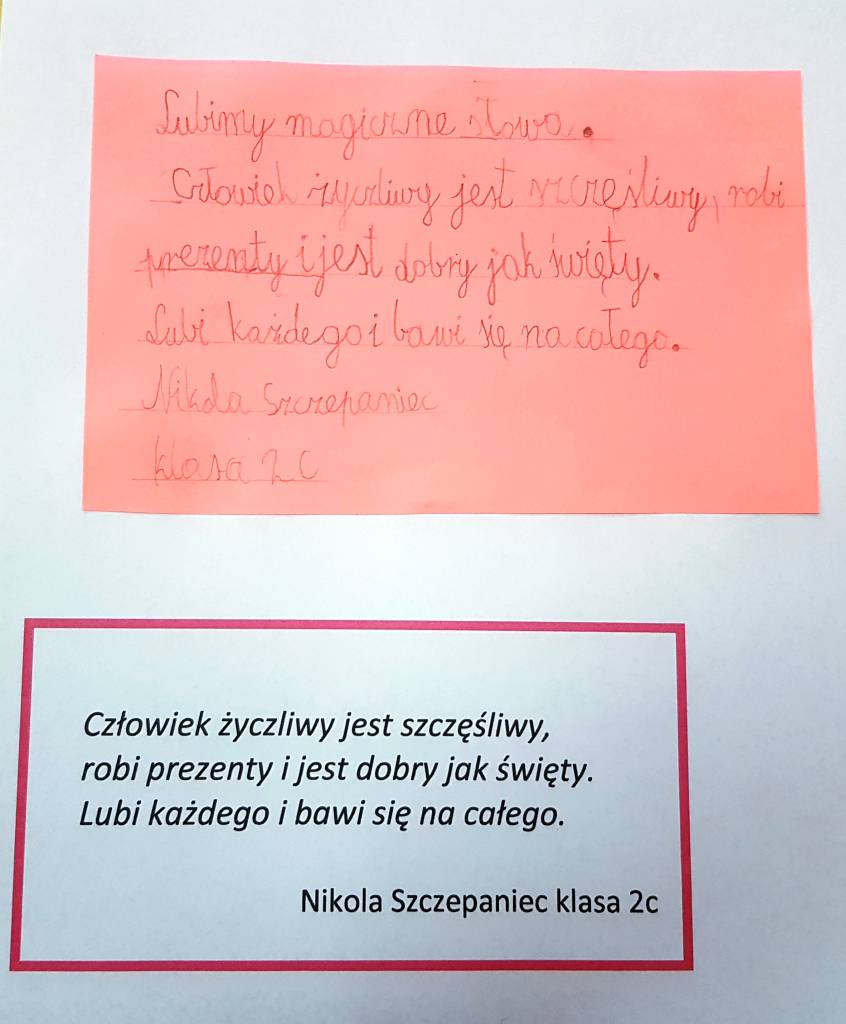 Lubimy magiczne słowa.
Człowiek życzliwy jest szczęśliwy, robi
prezenty i jest dobry jak święty.
Lubi każdego i bawi się na całego.
Nikola Szczepaniec
klasa 2 c
Człowiek życzliwy jest szczęśliwy,
robi prezenty i jest dobry jak święty.
Lubi każdego i bawi się na całego.
Nikola Szczepaniec klasa 2c